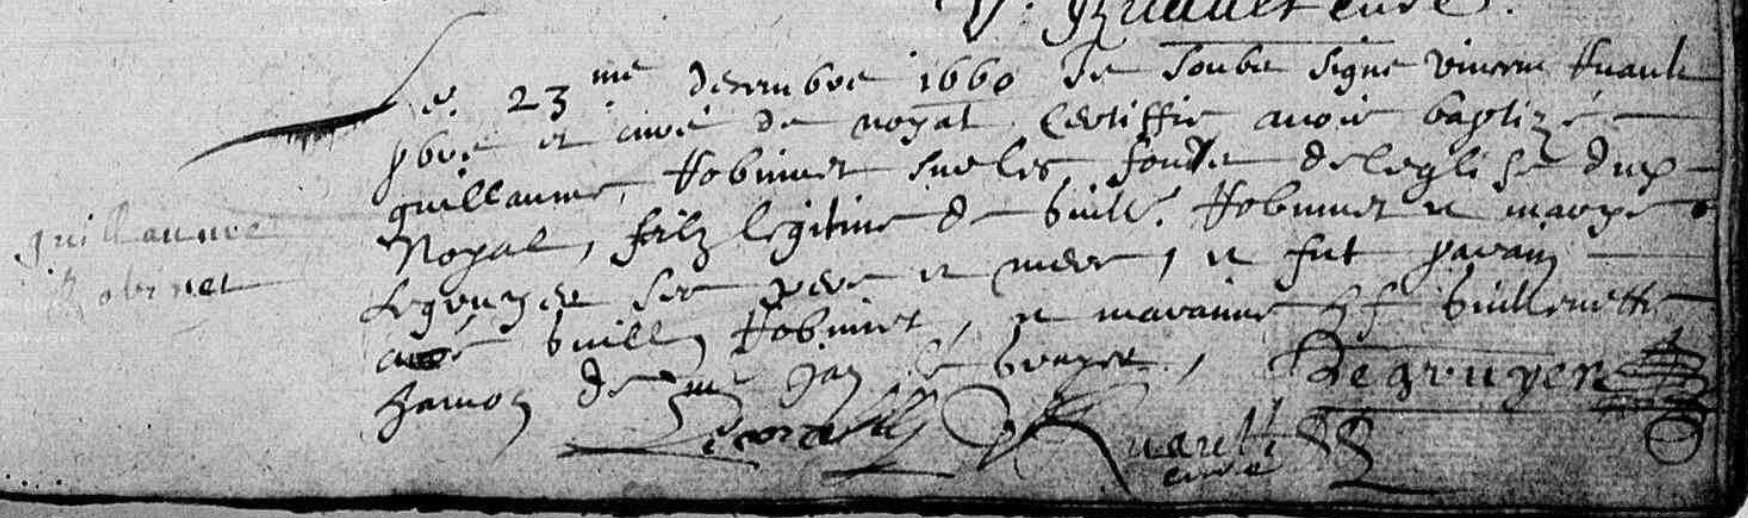 V. Ruault curé.
Le 23me decembre 1660 Je soube signe vincent Ruault
pbre et curé de noyal Certiffie avoir baptizé
guillaume Robinet sur les fons de leglise du
Noyal, filz legitime de Guille Robinet et marye
Legruyer ses pere et mere, et fut parain
Guill Robinet, et maraine Guillemette
hamon de me Jan
guillaume
Robinet
Legruyer
Ruault
curé